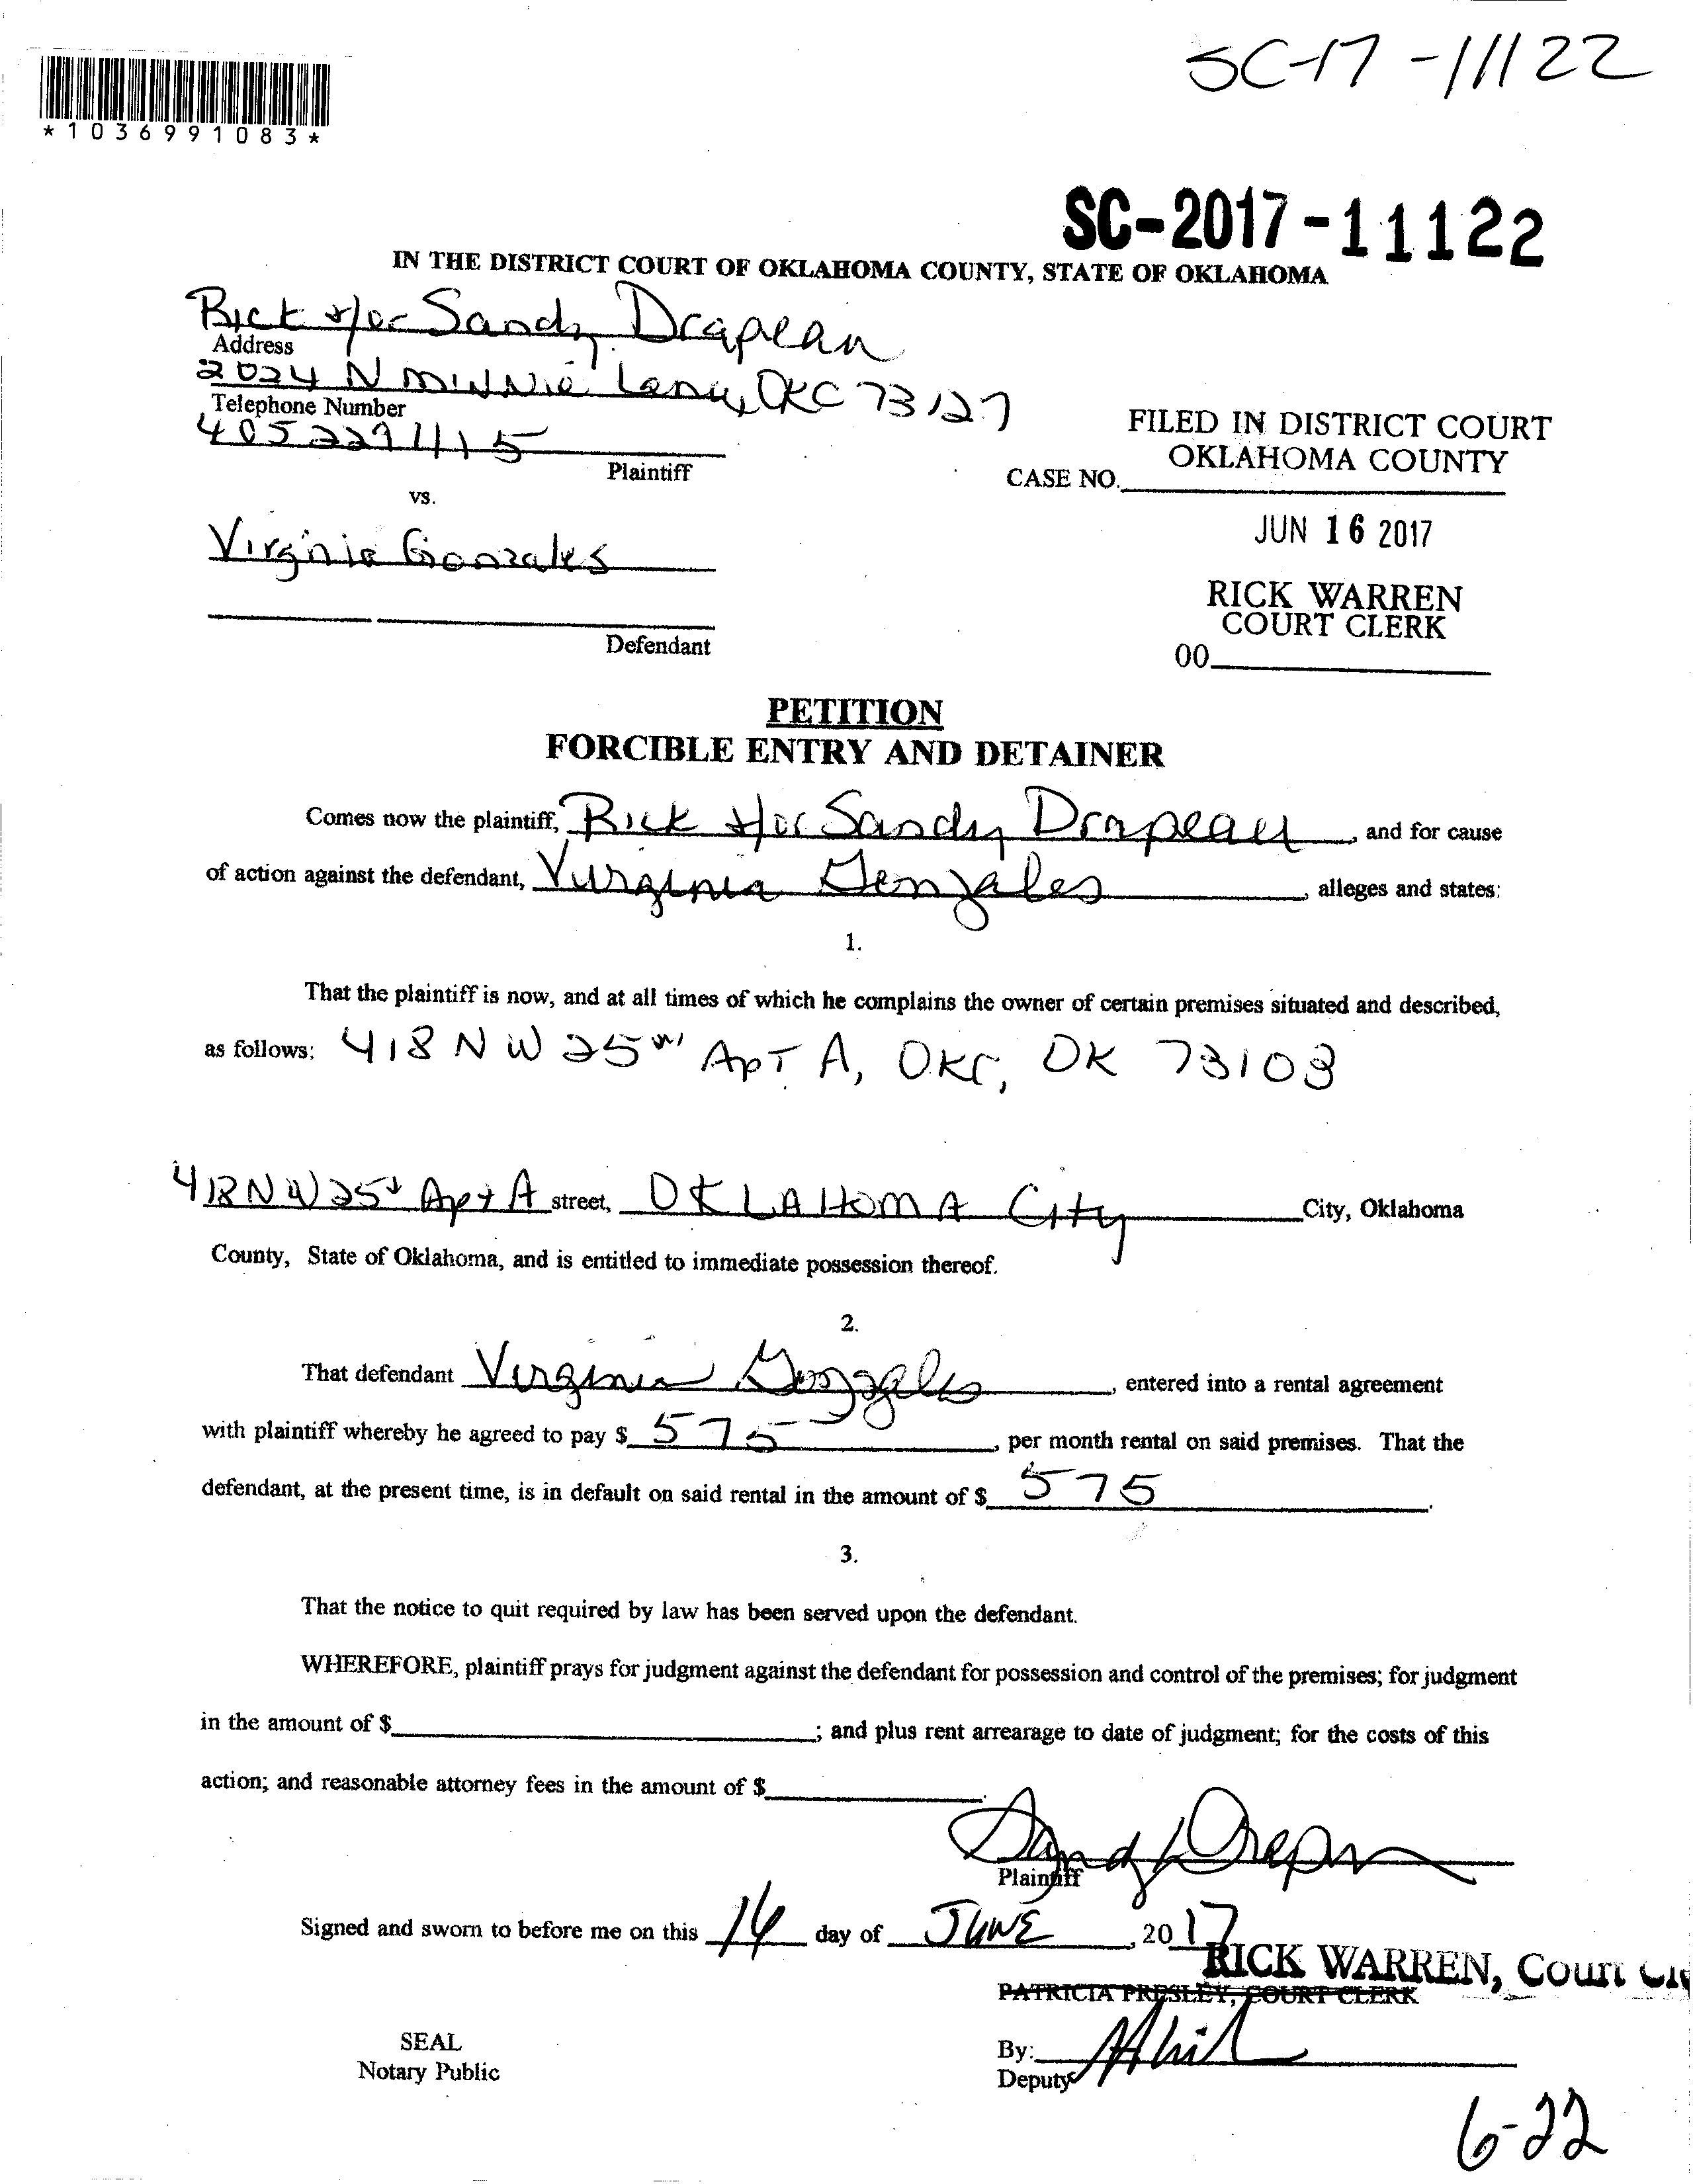 SC-17-11122
*1036991083*
SC-2017-11122
IN THE DISTRICT COURT OF OKLAHOMA COUNTY, STATE OF OKLAHOMA
Rick &/or Sandy Drapeau
Address
2024 N Minnie Lane, OKC 73127
Telephone Number
4052291115
Plaintiff
vs.
FILED IN DISTRICT COURT
OKLAHOMA COUNTY
CASE NO.
JUN 16 2017
Virginia Gonzales
RICK WARREN
COURT CLERK
Defendant
00
PETITION
FORCIBLE ENTRY AND DETAINER
Comes now the plaintiff, Rick &/or Sandy Drapeau, and for cause
of action against the defendant, Virginia Gonzales, alleges and states:
1.
That the plaintiff is now, and at all times of which he complains the owner of certain premises situated and described,
as follows: 418 NW 25th Apt A, OKC, OK 73103
418 NW 25 Apt A street, OKLAHOMA City City, Oklahoma
County, State of Oklahoma, and is entitled to immediate possession thereof.
2.
That defendant Virginia Gonzales, entered into a rental agreement
with plaintiff whereby he agreed to pay $ 575, per month rental on said premises. That the
defendant, at the present time, is in default on said rental in the amount of $ 575.
3.
That the notice to quit required by law has been served upon the defendant.
WHEREFORE, plaintiff prays for judgment against the defendant for possession and control of the premises; for judgment
in the amount of $ ; and plus rent arrearage to date of judgment; for the costs of this
action; and reasonable attorney fees in the amount of $ .
Sandy Drapeau
Plaintiff
Signed and sworn to before me on this 14 day of JUNE, 2017
RICK WARREN, Court
PATRICIA PRESLEY, COURT CLERK
SEAL
Notary Public
By:
Deputy
6-22